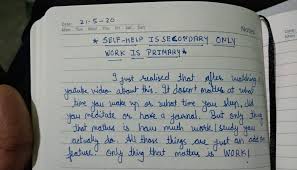 Date: 21-5-20
Mon Tue Wed Thu Fri Sat Sun
Notes
* SELF-HELP IS SECONDARY ONLY
WORK IS PRIMARY *
I just realised that after watching
youtube video about this. It doesn't matter at what
time you wake up or what time you sleep, did
you meditate or have a journal. But only thing
that matters is how much work/study you
actually do. All those things are just an add on
feature. Only thing that matter is WORK!